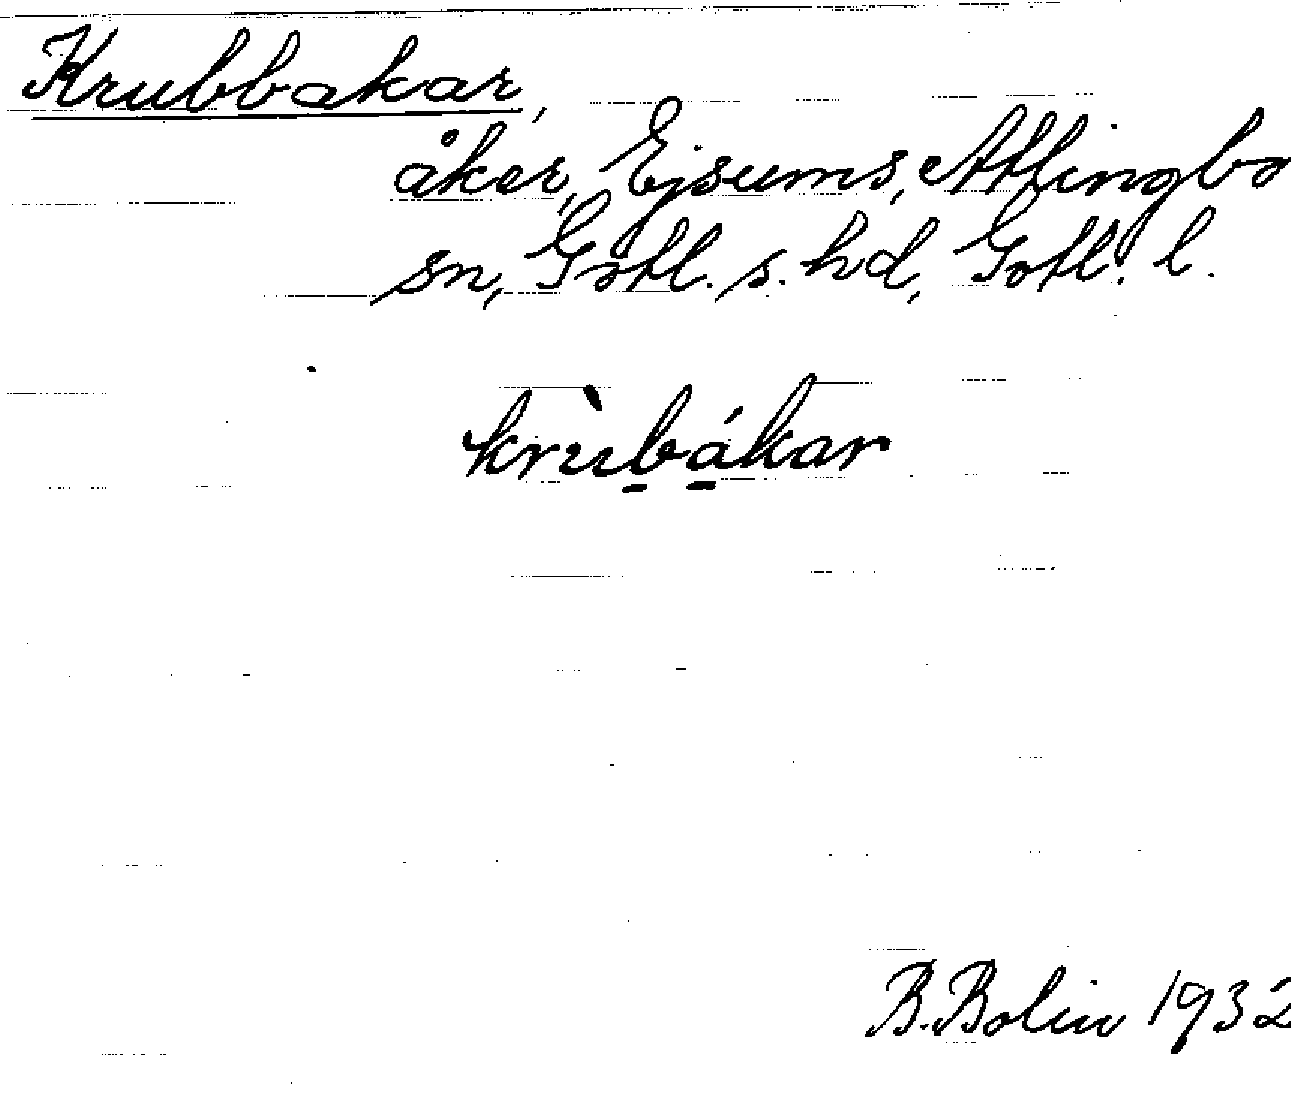 Krubbakar,
åker, Ejsums, Atlingbo
sn, Gotl. s. hd, Gotl. l.
krùb̠á̠kar
B. Bolin 1932